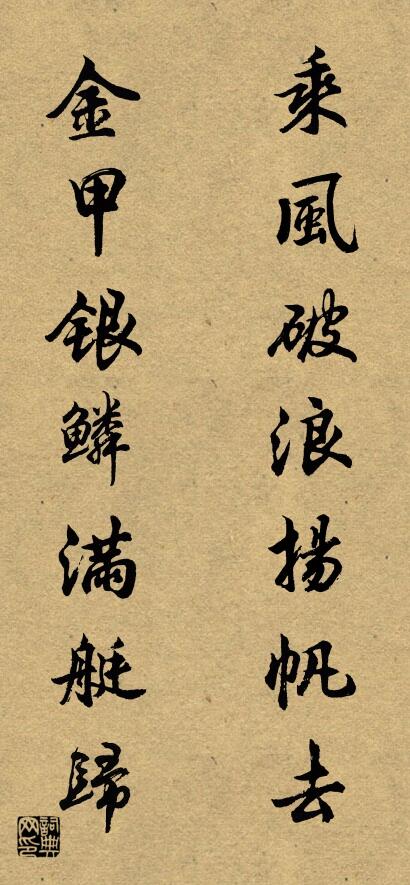 乘風破浪揚帆去
金甲銀鱗滿艇歸
詞典網印